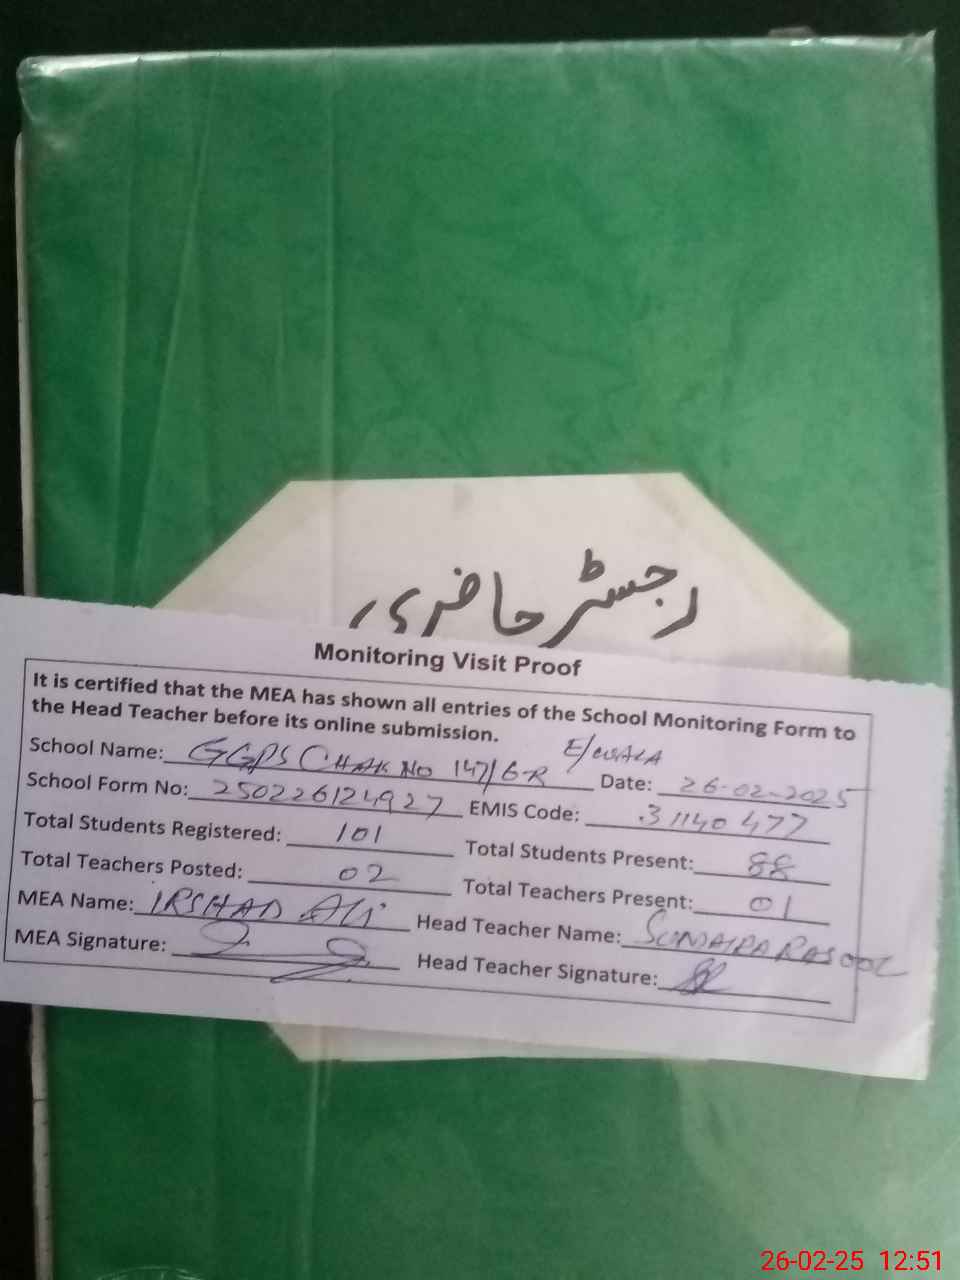 رجسٹر حاضری
Monitoring Visit Proof
It is certified that the MEA has shown all entries of the School Monitoring Form to
the Head Teacher before its online submission.
School Name: GGPS CHAK NO 147/6-R Date: 26-02-2025
School Form No: 250226124927 EMIS Code: 31140477
Total Students Registered: 101 Total Students Present: 88
Total Teachers Posted: 02 Total Teachers Present: 01
MEA Name: IRSHAD ALI Head Teacher Name: SUMAIRA RASOOL
MEA Signature: Head Teacher Signature:
26-02-25 12:51